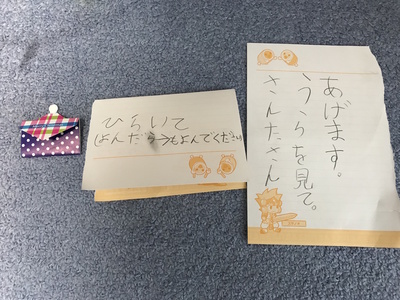 ひらいて
(よんだらうらもよんでください)
あげます。
うらを見て。
さんたさん